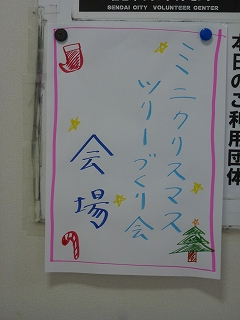 SENDAI CITY VOLUNTEER CENTER
本日のご利用団体
ミニクリスマス
ツリーづくり会
会場